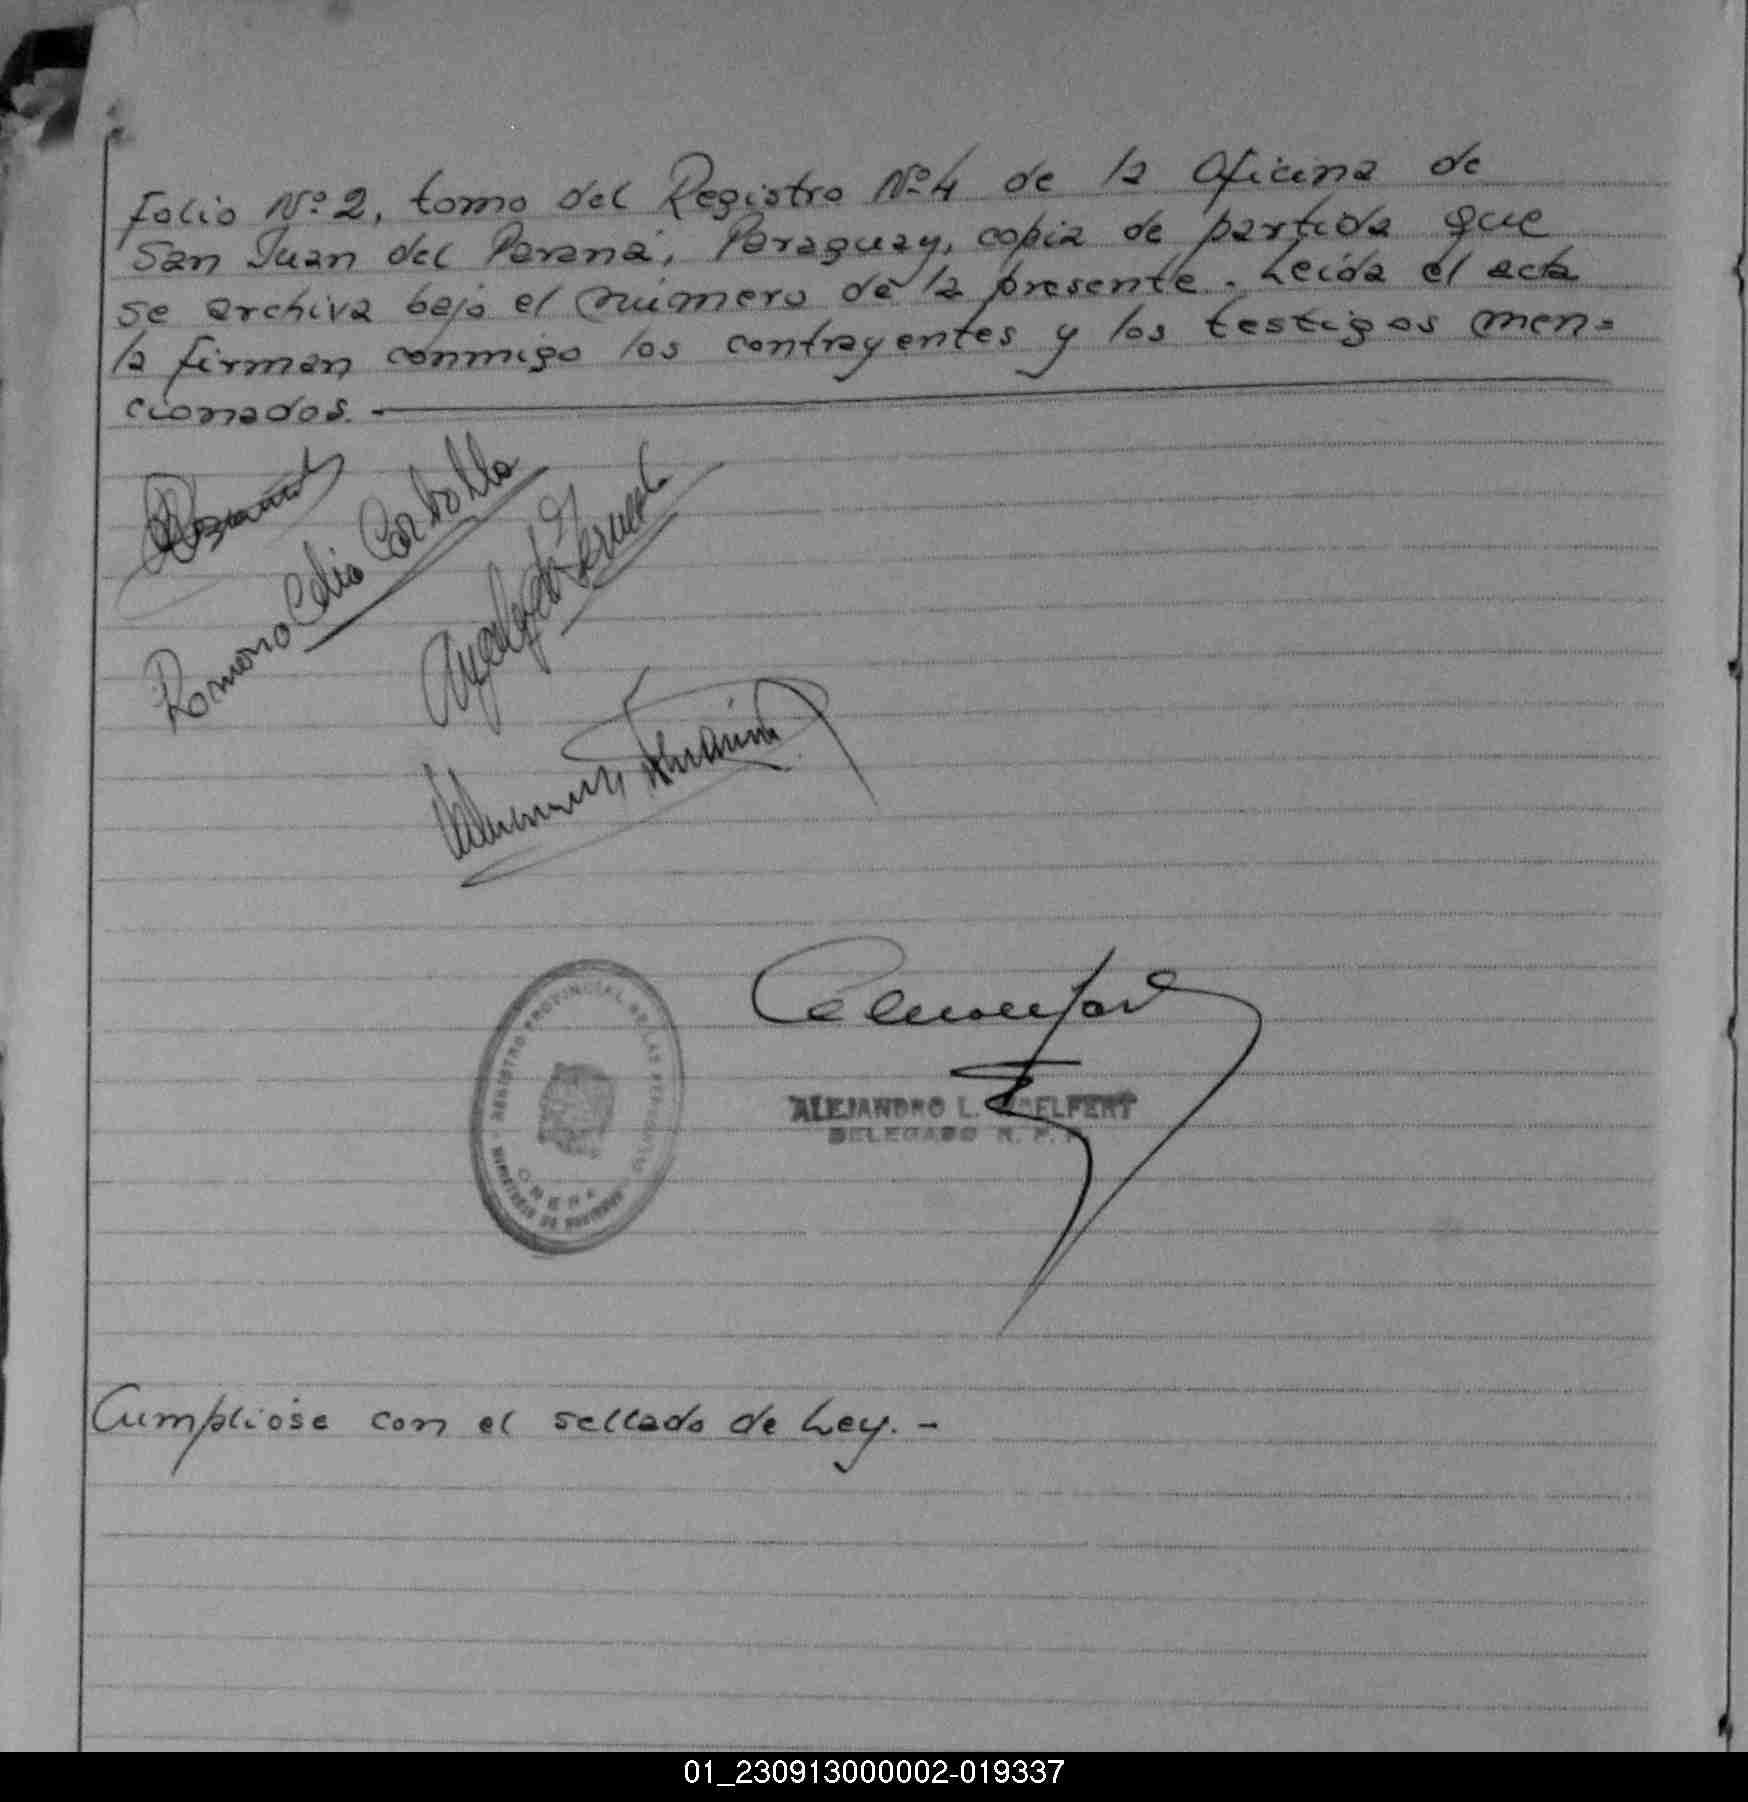 folio Nº 2, tomo del Registro Nº 4 de la Oficina de
San Juan del Paraná, Paraguay, copia de partida que
se archiva bajo el número de la presente. Leída el acta
la firman conmigo los contrayentes y los testigos men=
cionados. -
Romero Celia
REGISTRO PROVINCIAL DE LAS PERSONAS
MINISTERIO DE GOBIERNO
OBERA
ALEJANDRO L.
DELEGADO R. P.
Cumplióse con el sellado de Ley. -
01_230913000002-019337